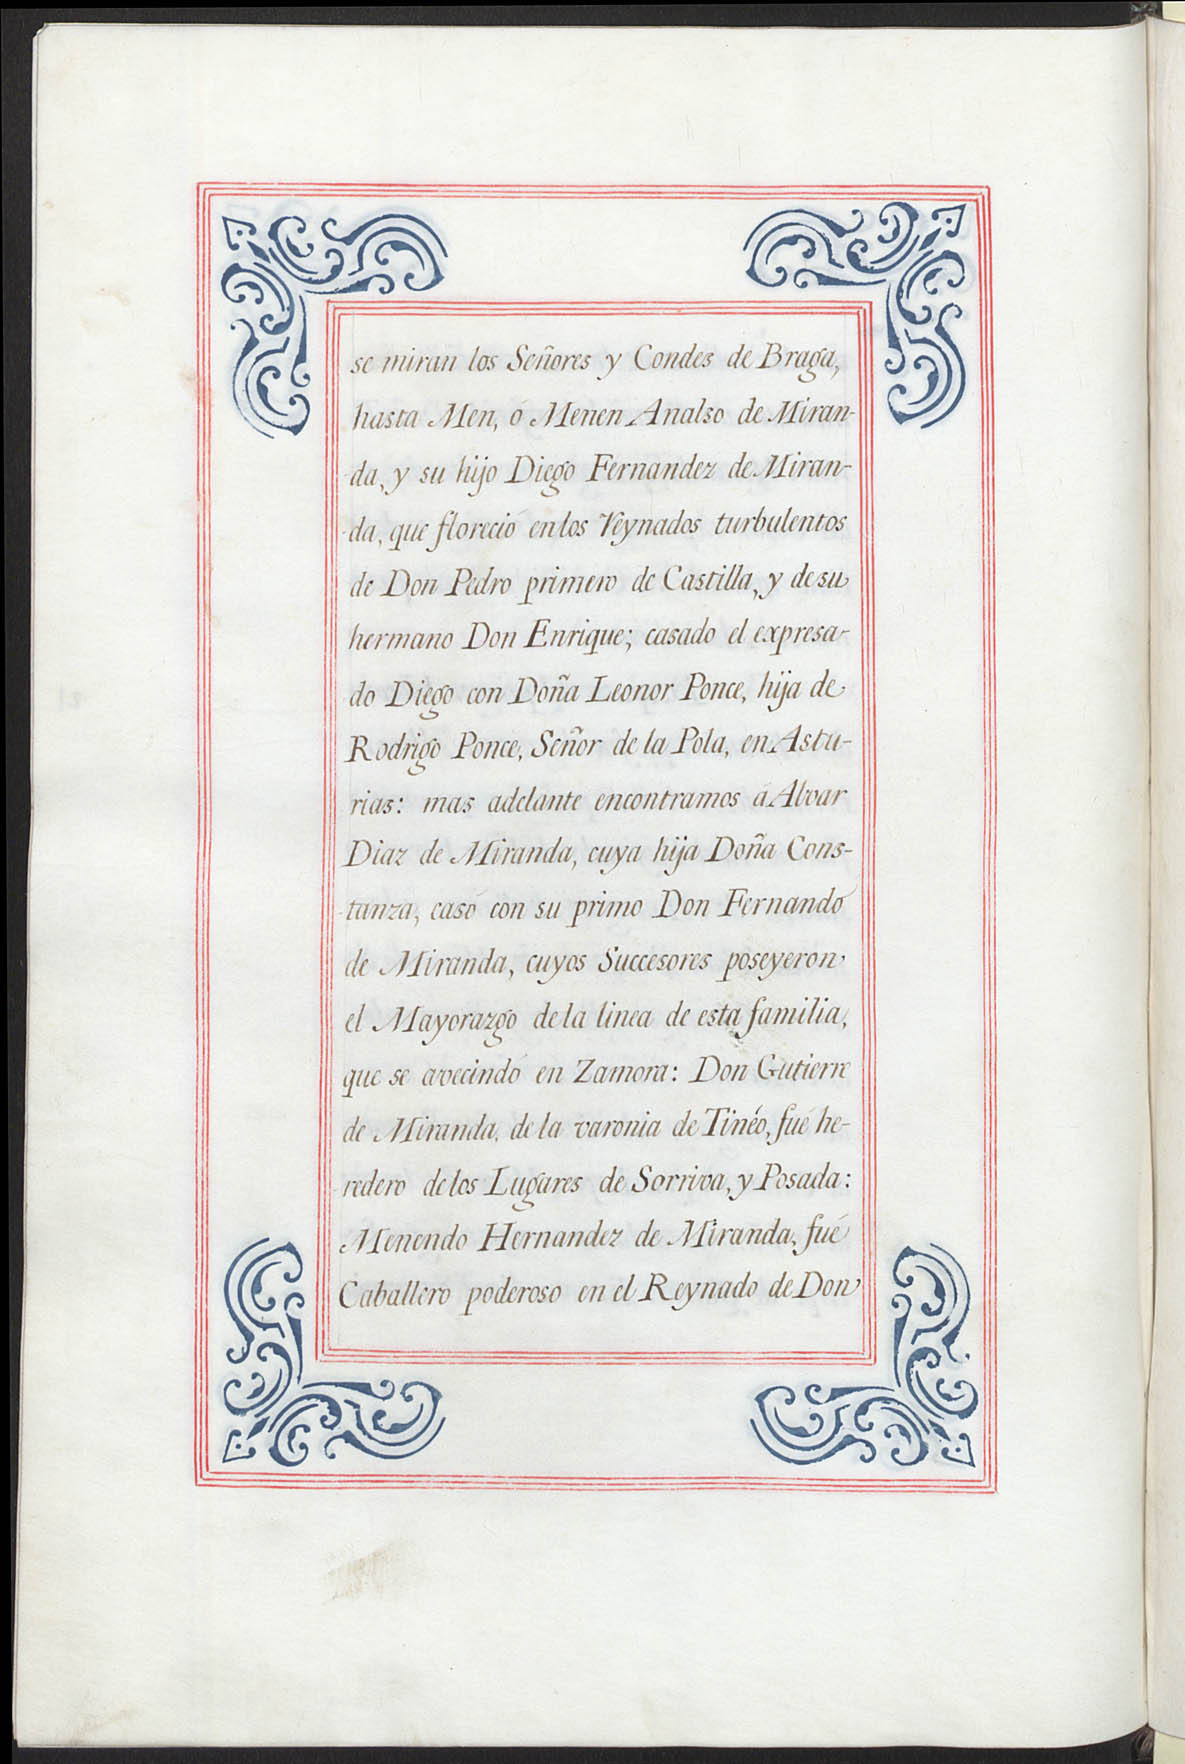 se miran los Señores y Condes de Braga,
hasta Men, ó Menen Analso de Miran-
-da, y su hijo Diego Fernandez de Miran-
-da, que floreció en los Reynados turbulentos
de Don Pedro primero de Castilla, y de su
hermano Don Enrique; casado el expresa-
do Diego con Doña Leonor Ponce, hija de
Rodrigo Ponce, Señor de la Pola, en Astu-
rias: mas adelante encontramos á Alvar
Diaz de Miranda, cuya hija Doña Cons-
-tanza, casó con su primo Don Fernando
de Miranda, cuyos Succesores poseyeron
el Mayorazgo de la linea de esta familia,
que se avecindó en Zamora: Don Gutierre
de Miranda, de la varonia de Tinéo, fué he-
redero de los Lugares de Sorriva, y Posada:
Menendo Hernandez de Miranda, fué
Caballero poderoso en el Reynado de Don